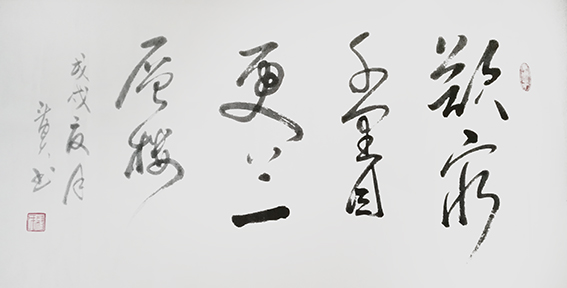 欲窮
千里目
更上一
層樓
戊戌夏月
书